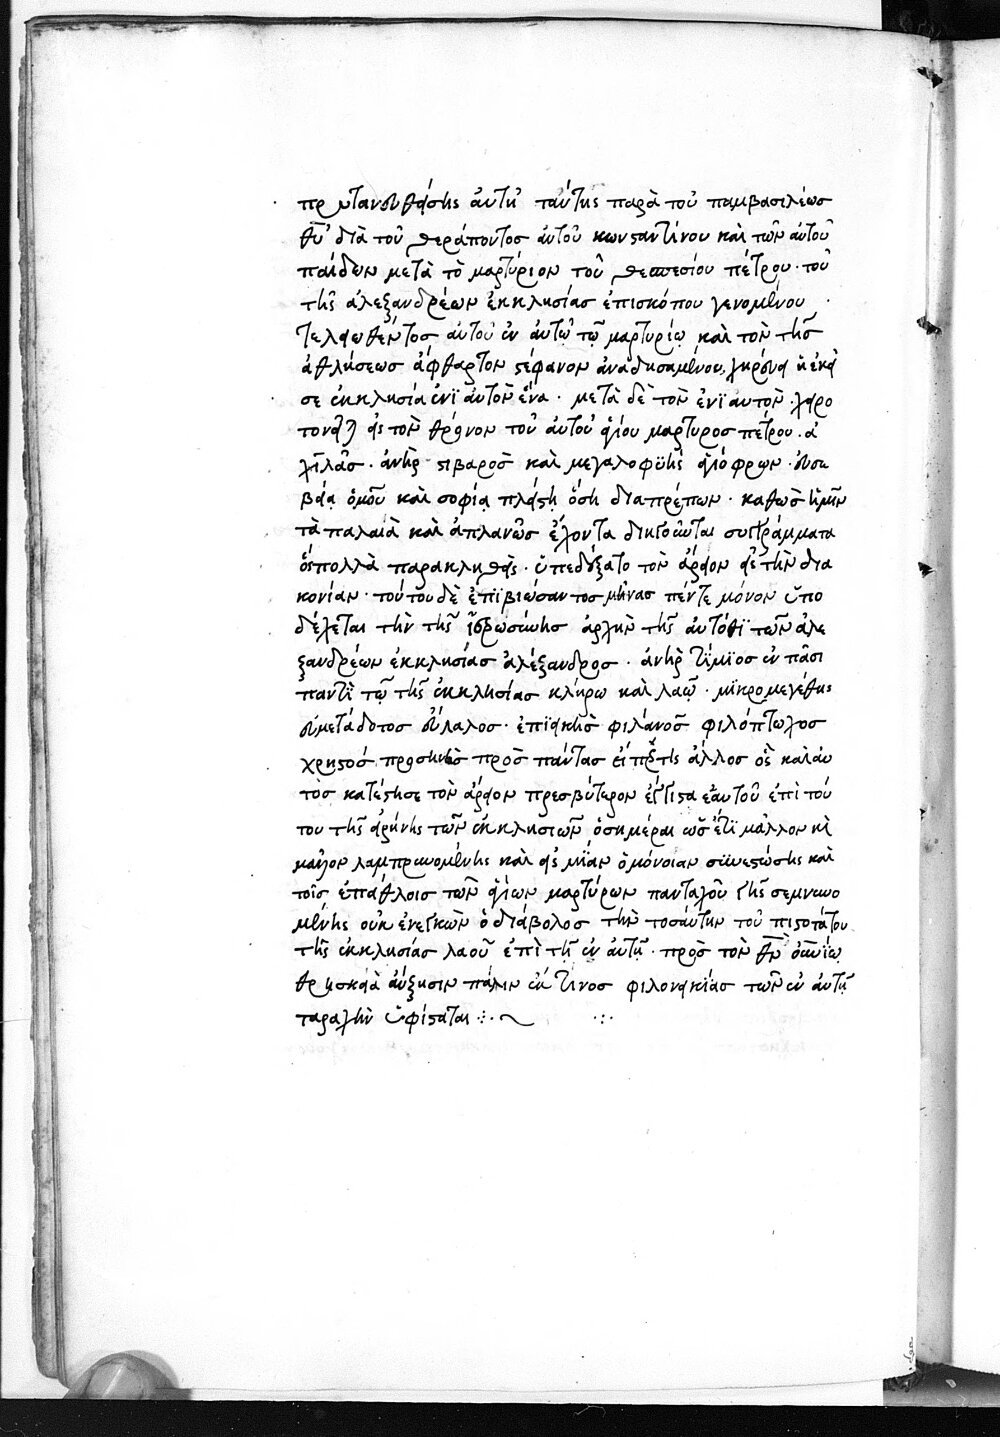 πρυτανευθείσης αὐτῇ ταύτης παρὰ τοῦ παμβασιλέως
θυ διὰ τοῦ θεράποντος αὐτοῦ κωνσταντίνου καὶ τῶν αὐτοῦ
παίδων μετὰ τὸ μαρτύριον τοῦ θεσπεσίου πέτρου · τοῦ
τῆς ἀλεξανδρέων ἐκκλησίας ἐπισκόπου γενομένου
τελειωθέντος αὐτοῦ ἐν αὐτῷ τῷ μαρτυρίῳ καὶ τὸν τῆς
ἀθλήσεως ἄφθαρτον στέφανον ἀναδησαμένου, χηρεύει ἡ ἐκεῖ
σε ἐκκλησία ἐνϊαυτὸν ἕνα · μετὰ δὲ τὸν ἐνϊαυτὸν · χειρο
τονεῖται εἰς τὸν θρόνον τοῦ αὐτοῦ ἁγίου μάρτυρος πέτρου · ἀ
χϊλᾶς · ἀνὴρ στιβαρὸς καὶ μεγαλοφϋὴς ἁγιόφρων · εὐσε
βείᾳ ὁμοῦ καὶ σοφίᾳ πλείστῃ ὅση διαπρέπων · καθὼς ἡμῖν
τὰ παλαιὰ καὶ ἀπλανῶς ἔχοντα διηγοῦνται συγγράμματα
ὅσπολλὰ παρακληθεὶς · ὑπεδέξατο τὸν ἄρειον εἰς τὴν δια
κονίαν · τούτου δὲ ἐπϊβιώσαντος μῆνας πέντε μόνον ὑπο
δέχεται τὴν τῆς ἱερωσύνης ἀρχὴν τῆς αὐτόθϊ τῶν ἀλε
ξανδρέων ἐκκλησίας ἀλέξανδρος · ἀνὴρ τίμϊος ἐν πᾶσι
παντὶ τῷ τῆς ἐκκλησίας κλήρω καὶ λαῷ · μϊκρομεγέθης
εὐμετάδοτος εὔλαλος · ἐπϊεικὴς φιλάνος φιλόπτωχος
χρηστός προσηνὴς πρὸς πάντας εἴπερ τὶς ἄλλος ὃς καὶ αὐ
τὸς κατέστησε τὸν ἄρειον πρεσβύτερον ἔγγιστα ἑαυτοῦ ἐπὶ τού
του τῆς εἰρήνης τῶν ἐκκλησιῶν ὁσημέραι ὡς ἔτϊ μᾶλλον καὶ
μεῖζον λαμπρυνομένης καὶ εἰς μΐαν ὁμόνοιαν συνεστώσης καὶ
τοῖς ἐπάθλοις τῶν ἁγίων μαρτύρων πανταχοῦ γῆς σεμνυνο
μένης οὐκ ἐνεγκὼν ὁ διάβολος τὴν τοσαύτην τοῦ πιστοτάτου
τῆς ἐκκλησίας λαοῦ ἐπὶ τῇ ἐν αὐτῇ · πρὸς τὸν θν ὁσίῳ
θρησκείᾳ αὔξησιν πάλιν ἔκ τινος φιλονεικίας τῶν ἐν αὐτῇ
ταραχὴν ὑφίσταται